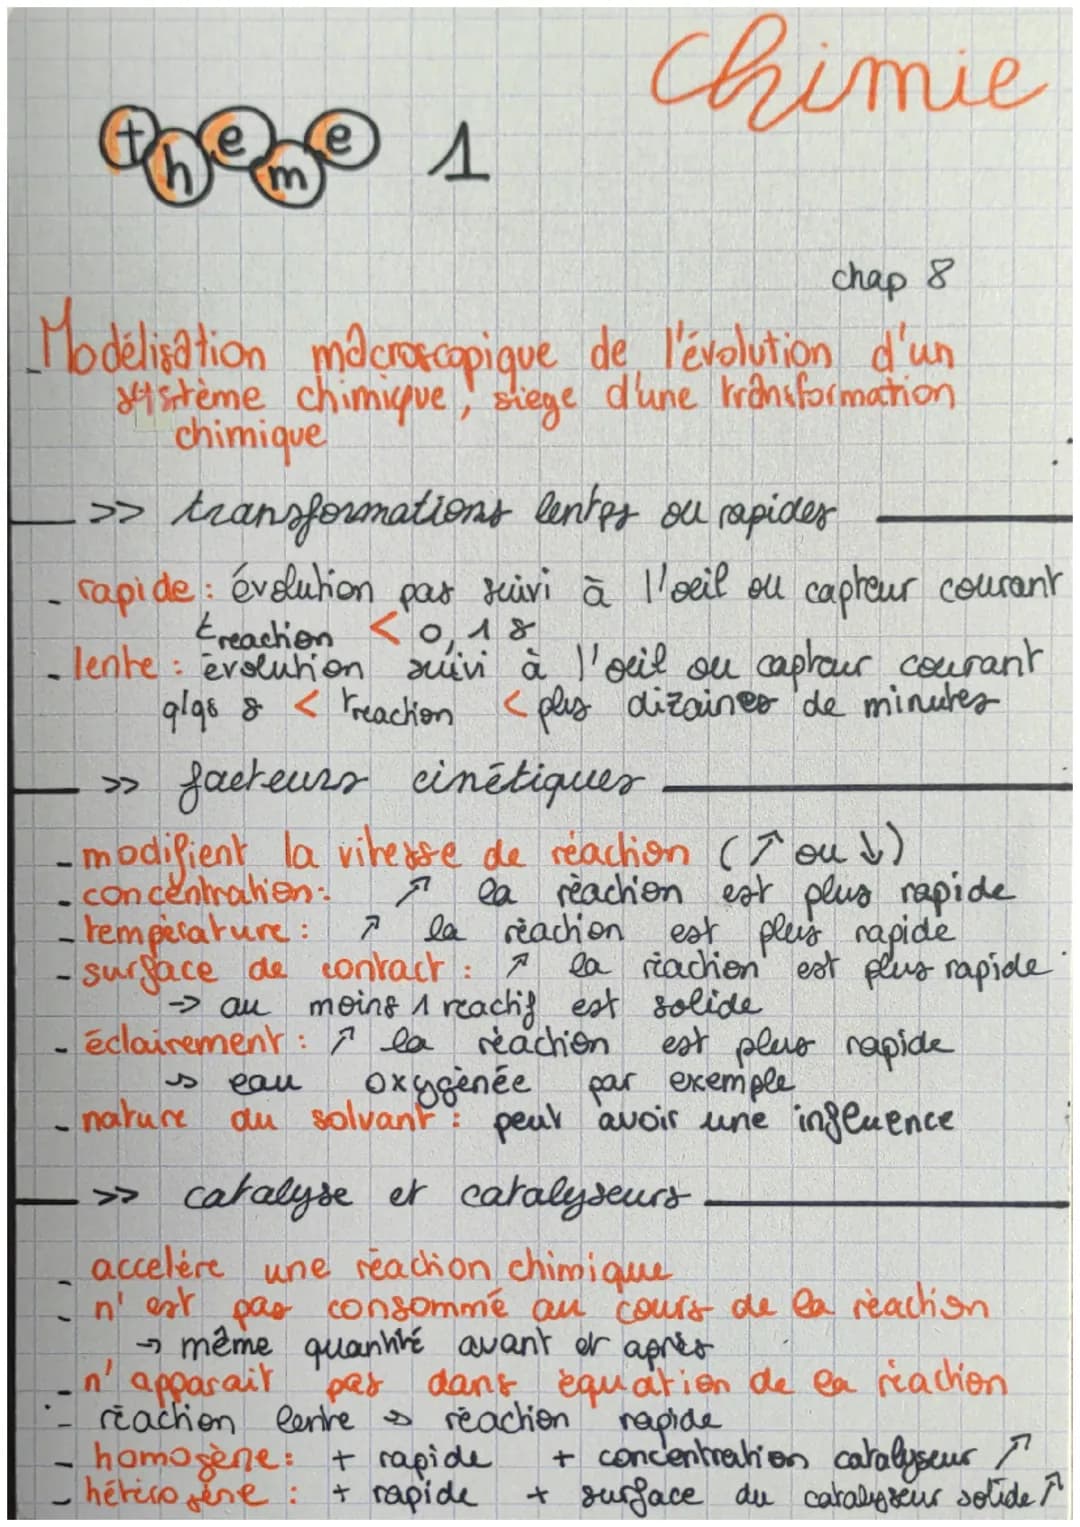 Chimie
theme 1
chap 8
Modélisation macroscopique de l'évolution d'un
système chimique, siege d'une transformation
chimique
>> transformations lentes ou rapides
- rapide : évolution pas suivi à l'oeil ou capteur courant
treaction < 0,1 s
- lente : évolution suivi à l'oeil ou capteur courant
qlqs s < treaction < plrs dizaines de minutes
>> facteurs cinétiques
- modifient la vitesse de réaction (↗ ou ↓)
- concentration : ↗ la réaction est plus rapide
- température : ↗ la réaction est plus rapide
- surface de contact : ↗ la réaction est plus rapide
→ au moins 1 reactif est solide
- éclairement : ↗ la réaction est plus rapide
→ eau oxygénée par exemple
- nature du solvant : peut avoir une influence
>> catalyse et catalyseurs
- accelére une réaction chimique
- n'est pas consommé au cours de la réaction
→ même quantité avant et après
- n'apparait pas dans équation de la réaction
- réaction lente → réaction rapide
- homogène : + rapide + concentration catalyseur ↗
- hétérogène : + rapide + surface du catalyseur solide ↗